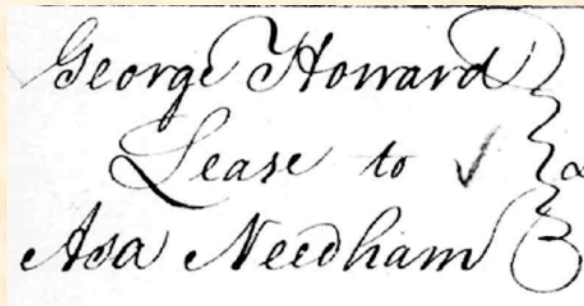 George Howard
Lease to ✓
Asa Needham